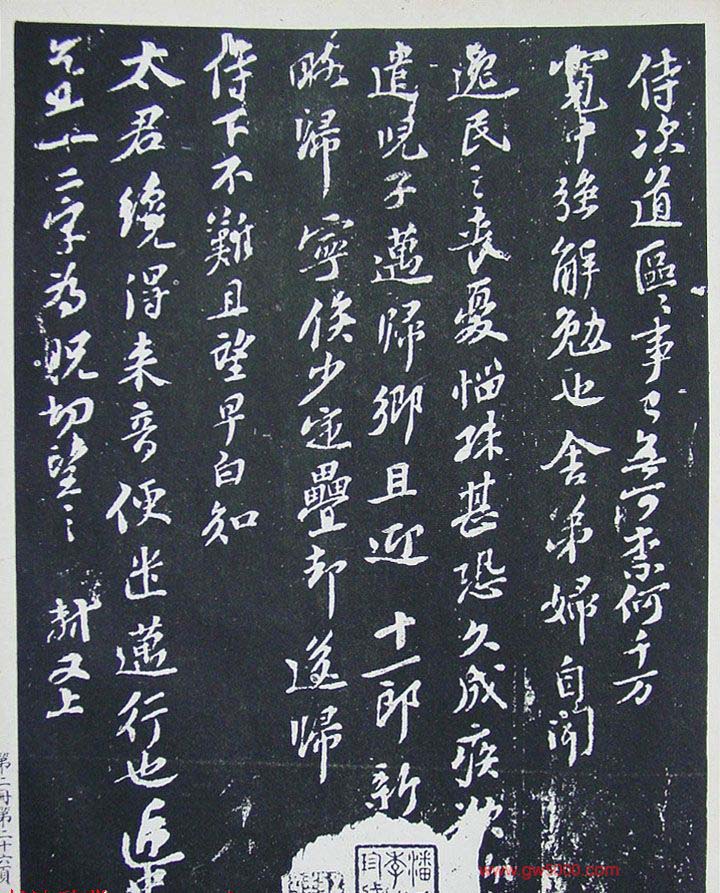 侍次道區〻事已無可柰何千万
寬中強解勉也舍弟婦自聞
逸民之喪憂惱殊甚恐久成疾欲
遣兒子邁歸鄉且迎 十一郎新
婦歸寧俟少定疊却送歸
侍下不難且望早白知
太君纔得来音便遣邁行也
十二字為祝切望〻 軾又上
第二冊第二十六頁